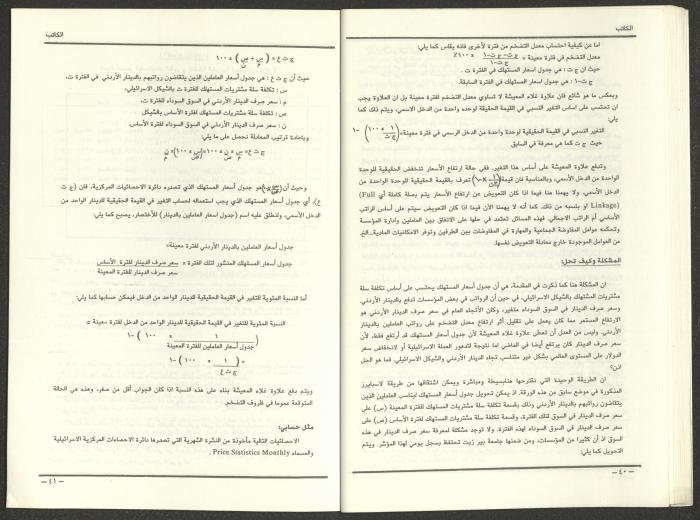 الكاتب
اما عن كيفية احتساب معدل التضخم من فترة لأخرى فانه يقاس كما يلي:
معدل التضخم في فترة معينة = ج ت - ج ت-١ / ج ت-١ × ١٠٠٪
حيث ان ج ت : هي جدول اسعار المستهلك في الفترة ت .
ج ت-١ : هي جدول اسعار المستهلك في الفترة السابقة.
وبعكس ما هو شائع فان علاوة غلاء المعيشة لا تساوي معدل التضخم لفترة معينة بل ان العلاوة يجب
ان تحتسب على اساس التغير النسبي في القيمة الحقيقية لوحده واحدة من الدخل الاسمي، ويتم ذلك كما
يلي:
التغير النسبي في القيمة الحقيقية لوحدة واحدة من الدخل الرسمي في فترة معينة = (١ / ج ت × ١٠٠) -١
حيث ج ت كما هي معرفة في السابق
وتدفع علاوة غلاء المعيشة على أساس هذا التغير. ففي حالة ارتفاع الأسعار تنخفض الحقيقية للوحدة
الواحدة من الدخل الأسمي، وبالمناسبة فان قيمة (١ / ج ت × ١٠٠) تعرف بالقيمة الحقيقية للوحدة الواحدة من
الدخل الأسمي. ولا يهمنا هنا فيما اذا كان التعويض عن ارتفاع الأسعار يتم بصلة كاملة أي (Full
Linkage) او بنسبه من ذلك، كما أنه لا يهمنا الآن فيما اذا كان التعويض سيتم على أساس الراتب
الأساسي أم الراتب الاجمالي. فهذه المسائل تعتمد في حلها على الاتفاق بين العاملين وادارة المؤسسة
وتحكمه عوامل المفاوضة الجماعية والمهارة في المفاوضات بين الطرفين وتوفر الامكانيات المادية...الخ.
من العوامل الموجودة خارج معادلة التعويض نفسها.
المشكلة وكيف تحل:
ان المشكلة هنا كما ذكرت في المقدمة، هي أن جدول أسعار المستهلك يحتسب على أساس تكلفة سلة
مشتريات المستهلك بالشيكل الاسرائيلي، في حين أن الرواتب في بعض المؤسسات تدفع بالدينار الأردني.
وسعر صرف الدينار في السوق السوداء متغير، وكان الأتجاه العام في سعر صرف الدينار الأردني هو
الارتفاع المستمر مما كان يعمل على تقليل أثر ارتفاع معدل التضخم على رواتب العاملين بالدينار
الأردني. وليس من العدل أن تعطى علاوة غلاء المعيشة لأن جدول أسعار المستهلك قد أرتفع فقط، لأن
سعر صرف الدينار كان يرتفع أيضا في الماضي اما نتيجة لتدهور العملة الاسرائيلية أو لانخفاض سعر
الدولار على المستوى العالمي بشكل غير متناسب تجاه الدينار الأردني والشيكل الاسرائيلي. فما هو الحل
اذن؟
ان الطريقة الوحيدة التي نقترحها هنا بسيطة ومباشرة ويمكن اشتقاقها من طريقة لاسبايرز
المذكورة في موضع سابق من هذه الورقة. اذ يمكن تحويل جدول أسعار المستهلك ليناسب العاملين الذين
يتقاضون رواتبهم بالدينار الأردني وذلك بقسمة تكلفة سلة مشتريات المستهلك للفترة المعينة (س) على
سعر صرف الدينار في السوق لتلك الفترة، وقسمة تكلفة سلة مشتريات المستهلك لفترة الأساس (ص) على
سعر صرف الدينار في السوق السوداء لهذه الفترة. ولا توجد مشكلة لمعرفة سعر صرف الدينار في هذه
السوق اذ أن كثيرا من المؤسسات، ومن ضمنها جامعة بير زيت تحتفظ بسجل يومي لهذا المؤشر. ويتم
التحويل كما يلي:
— ٤٠ —
الكاتب
ج ت ع = (س/م ÷ ص/ن) × ١٠٠
حيث أن ج ت ع : هي جدول أسعار العاملين الذين يتقاضون رواتبهم بالدينار الأردني في الفترة ت.
س : تكلفة سلة مشتريات المستهلك للفترة ت بالشيكل الاسرائيلي.
م : سعر صرف الدينار في السوق السوداء للفترة ت.
ص : تكلفة سلة مشتريات المستهلك لفترة الأساس بالشيكل
ن : سعر صرف الدينار الأردني في السوق السوداء لفترة الأساس.
وباعادة ترتيب المعادلة نحصل على ما يلي:
ج ت ع = س/ص × ن/م × ١٠٠ = (س/ص × ١٠٠) × ن/م
وحيث أن (س/ص × ١٠٠) هو جدول أسعار المستهلك الذي تصدره دائرة الاحصائيات المركزية، فان (ج ت
ع)، أي جدول أسعار المستهلك الذي يجب استعماله لحساب التغير في القيمة الحقيقية للدينار الواحد من
الدخل الأسمي، ولنطلق عليه اسم (جدول اسعار العاملين بالدينار) للأختصار، يصبح كما يلي:
جدول أسعار العاملين بالدينار الأردني لفترة معينة=
جدول أسعار المستهلك المنشور لتلك الفترة × سعر صرف الدينار لفترة الأساس
سعر صرف الدينار للفترة المعينة
أما النسبة المئوية للتغير في القيمة الحقيقية للدينار الواحد من الدخل فيمكن حسابها كما يلي:
النسبة المئوية للتغير في القيمة الحقيقية للدينار الواحد من الدخل لفترة معينة =
(١ / جدول أسعار العاملين للفترة المعينة × ١٠٠) -١
= (١ / ج ت ع × ١٠٠) -١
ويتم دفع علاوة غلاء المعيشة بناء على هذه النسبة اذا كان الجواب أقل من صفر، وهذه هي الحالة
المتوقعة عموما في ظروف التضخم.
مثل حسابي:
الاحصائيات التالية مأخوذة من النشرة الشهرية التي تصدرها دائرة الاحصاءات المركزية الاسرائيلية
والمسماه Price Statistics Monthly .
— ٤١ —